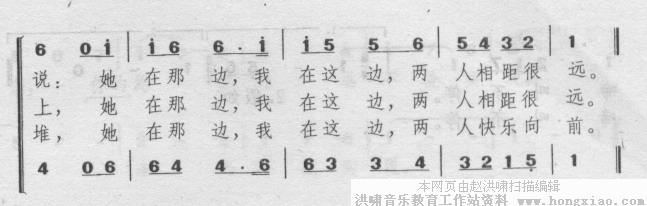 6 0i | i6 6·i | i5 5 6 | 5432 | 1 ‖
说：她 在那 边，我 在这 边，两 人相距很 远。
上，她 在那 边，我 在这 边，两 人相距很 远。
堆，她 在那 边，我 在这 边，两 人快乐向 前。
4 06 | 64 4·6 | 63 3 4 | 3215 | 1 ‖
本网页由赵洪啸扫描编辑
洪啸音乐教育工作站资料 www.hongxiao.com